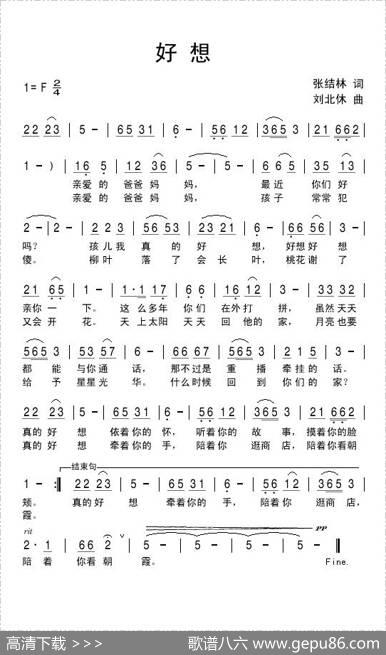 好 想
1=F 2/4
张结林 词
刘北休 曲
22 23 | 5 - | 65 31 | 6 - | 56 12 | 365 3 | 21 662 |
1 - ) | 16 5 | 12 36 | 5 - | 66 5 | 35 13 |
亲爱 的 爸爸 妈 妈, 最近 你们 好
亲爱 的 爸爸 妈 妈, 孩子 常常 犯
2 - | 2 - | 23 5 | 56 53 | 23 21 | 6 - | 66 6 |
吗? 孩儿我 真 的 好 想, 好想好 想
傻。 柳叶 落 了 会 长 叶, 桃花谢 了
21 65 | 1 - | 1·1 17 | 6 6 | 16 12 | 3 - | 33 6 |
亲你 一 下。 这 么多年 你们 在外 打 拼, 虽然 天天
又会 开 花。 天 上太阳 天天 回 他的 家, 月亮 也要
565 3 | 53 57 | 6 - | 66·56 | 565 3 | 231 6 | 2 - |
都 能 与你 通 话, 那不过是 重 播 牵挂的 话。
给 予 星星 光 华。 什么时候 回 到 你们的 家?
22 23 | 565 31 | 6 - | 56 12 | 365 3 | 21 662 |
真的 好 想 依着你的 怀, 听着你的 故 事, 摸着你的脸
真的 好 想 牵着你的 手, 陪着你 逛商 店, 陪着你看朝
结束句
1 - :|| 22 23 | 5 - | 565 31 | 6 - | 56 12 | 365 3 |
颊。 真的 好 想 牵着你的 手, 陪着你 逛商 店,
霞。
rit pp
2·1 | 66 2 | 5 - | 5 - | 5 - | 5 - ||
陪 着 你看 朝 霞。 Fine.
高清下载 >>>
歌谱八六 www.gepu86.com